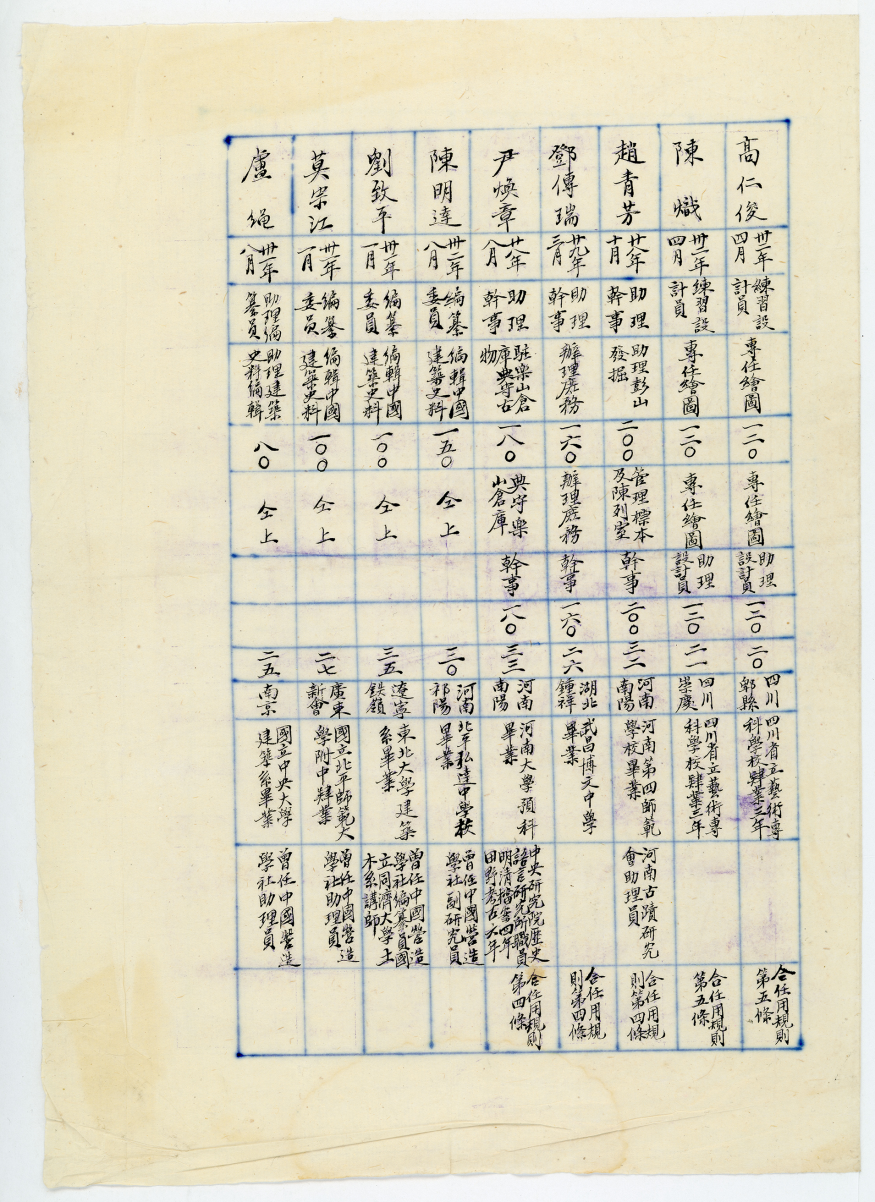 高仁俊
卅二年四月
練習設計員
專任繪圖
一二〇
專任繪圖
助理設計員
一二〇
二〇
四川郫縣
四川省立藝術專科學校肄業三年
合任用規則第五條
陳熾
卅二年四月
練習設計員
專任繪圖
一二〇
專任繪圖
助理設計員
一二〇
二一
四川崇慶
四川省立藝術專科學校肄業三年
合任用規則第五條
趙青芳
廿八年十月
助理幹事
助理彭山發掘
二〇〇
管理標本及陳列室
幹事
二〇〇
三二
河南南陽
河南第四師範學校畢業
河南古蹟研究會助理員
合任用規則第四條
鄧傳瑞
廿九年三月
助理幹事
辦理庶務
一六〇
辦理庶務
幹事
一六〇
二六
湖北鍾祥
武昌博文中學畢業
合任用規則第四條
尹煥章
廿八年八月
助理幹事
駐樂山倉庫典守古物
一八〇
典守樂山倉庫
幹事
一八〇
三三
河南南陽
河南大學預科畢業
中央研究院歷史語言研究所職員明清檔案四年田野考古六年
合任用規則第四條
陳明達
卅二年八月
編纂委員
編輯中國建築史料
一五〇
仝上
三〇
河南祁陽
北平弘達中學校畢業
曾任中國營造學社副研究員
劉致平
卅一年一月
編纂委員
編輯中國建築史料
一〇〇
仝上
三五
遼寧鉄嶺
東北大學建築系畢業
曾任中國營造學社編纂員國立同濟大學土木系講師
莫宗江
卅一年一月
編纂委員
編輯中國建築史料
一〇〇
仝上
二七
廣東新會
國立北平師範大學附中肄業
曾任中國營造學社助理員
盧繩
卅一年八月
助理編纂員
助理建築史料編輯
八〇
仝上
二五
南京
國立中央大學建築系畢業
曾任中國營造學社助理員